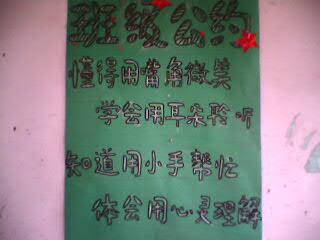 班级公约
懂得用嘴角微笑
学会用耳朵聆听
知道用小手帮忙
体会用心灵理解